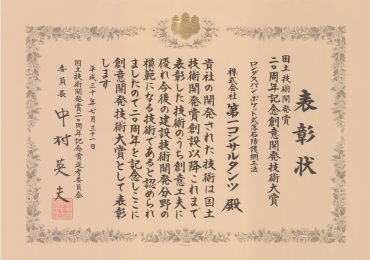 表彰状
国土技術開発賞
二〇周年記念創意開発技術大賞
ロングスパンポケット式落石防護網工法
株式会社 第一コンサルタンツ 殿
貴社の開発された技術は国土
技術開発賞創設以降これまで
表彰した技術のうち創意工夫に
優れ今後の建設技術開発分野の
模範になる技術であると認められ
ましたので二〇周年を記念しここに
創意開発技術大賞として表彰
します
平成三十年七月三十一日
国土技術開発賞二〇周年記念賞選考委員会
委員長 中村英夫